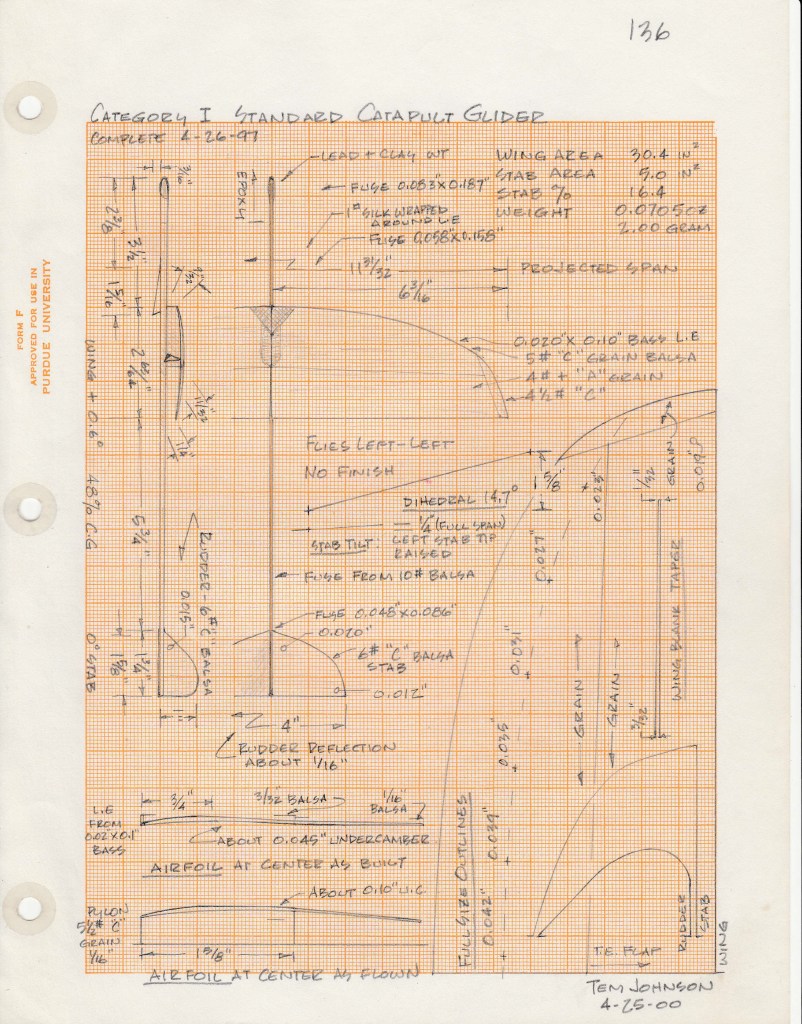 136
CATEGORY I STANDARD CATAPULT GLIDER
COMPLETE 4-26-97
LEAD + CLAY WT
FUSE 0.083"X0.187"
1" SILK WRAPPED
AROUND L.E
FUSE 0.058"X0.158"
EPOXY
WING AREA 30.4 IN²
STAB AREA 5.0 IN²
STAB % 16.4
WEIGHT 0.0705 OZ
2.00 GRAM
3/16
2 3/8
3 1/2
1 5/16
11 31/32"
PROJECTED SPAN
6 3/16"
FORM F
APPROVED FOR USE IN
PURDUE UNIVERSITY
0.020"X 0.10" BASS L.E
5# "C" GRAIN BALSA
4# + "A" GRAIN
4 1/2# "C"
WING + 0.6°
48% C.G
0° STAB
11/32
1/4"
5 3/4"
FLIES LEFT-LEFT
NO FINISH
DIHEDRAL 14.7°
1/4" (FULL SPAN)
STAB TILT: LEFT STAB TIP
RAISED
1 5/8"
0.023"
1/32
GRAIN
FUSE FROM 10# BALSA
0.027"
RUDDER - 6# "C" BALSA
0.015"
WING BLANK TAPER
3/32"
FUSE 0.048"X0.086"
0.020"
6# "C" BALSA
STAB
0.012"
1 5/8"
1 3/4"
1"
4"
0.031"
0.035"
GRAIN
GRAIN
RUDDER DEFLECTION
ABOUT 1/16"
3/4"
3/32" BALSA
1/16"
BALSA
L.E
FROM
0.02"X0.1"
BASS
ABOUT 0.045" UNDERCAMBER
AIRFOIL AT CENTER AS BUILT
FULL SIZE OUTLINES
0.039"
0.042"
ABOUT 0.10" U.C.
PYLON
5 1/2# "C"
GRAIN
1/16"
1 3/8"
AIRFOIL AT CENTER AS FLOWN
T.E. FLAP
RUDDER
STAB
WING
TEM JOHNSON
4-25-00